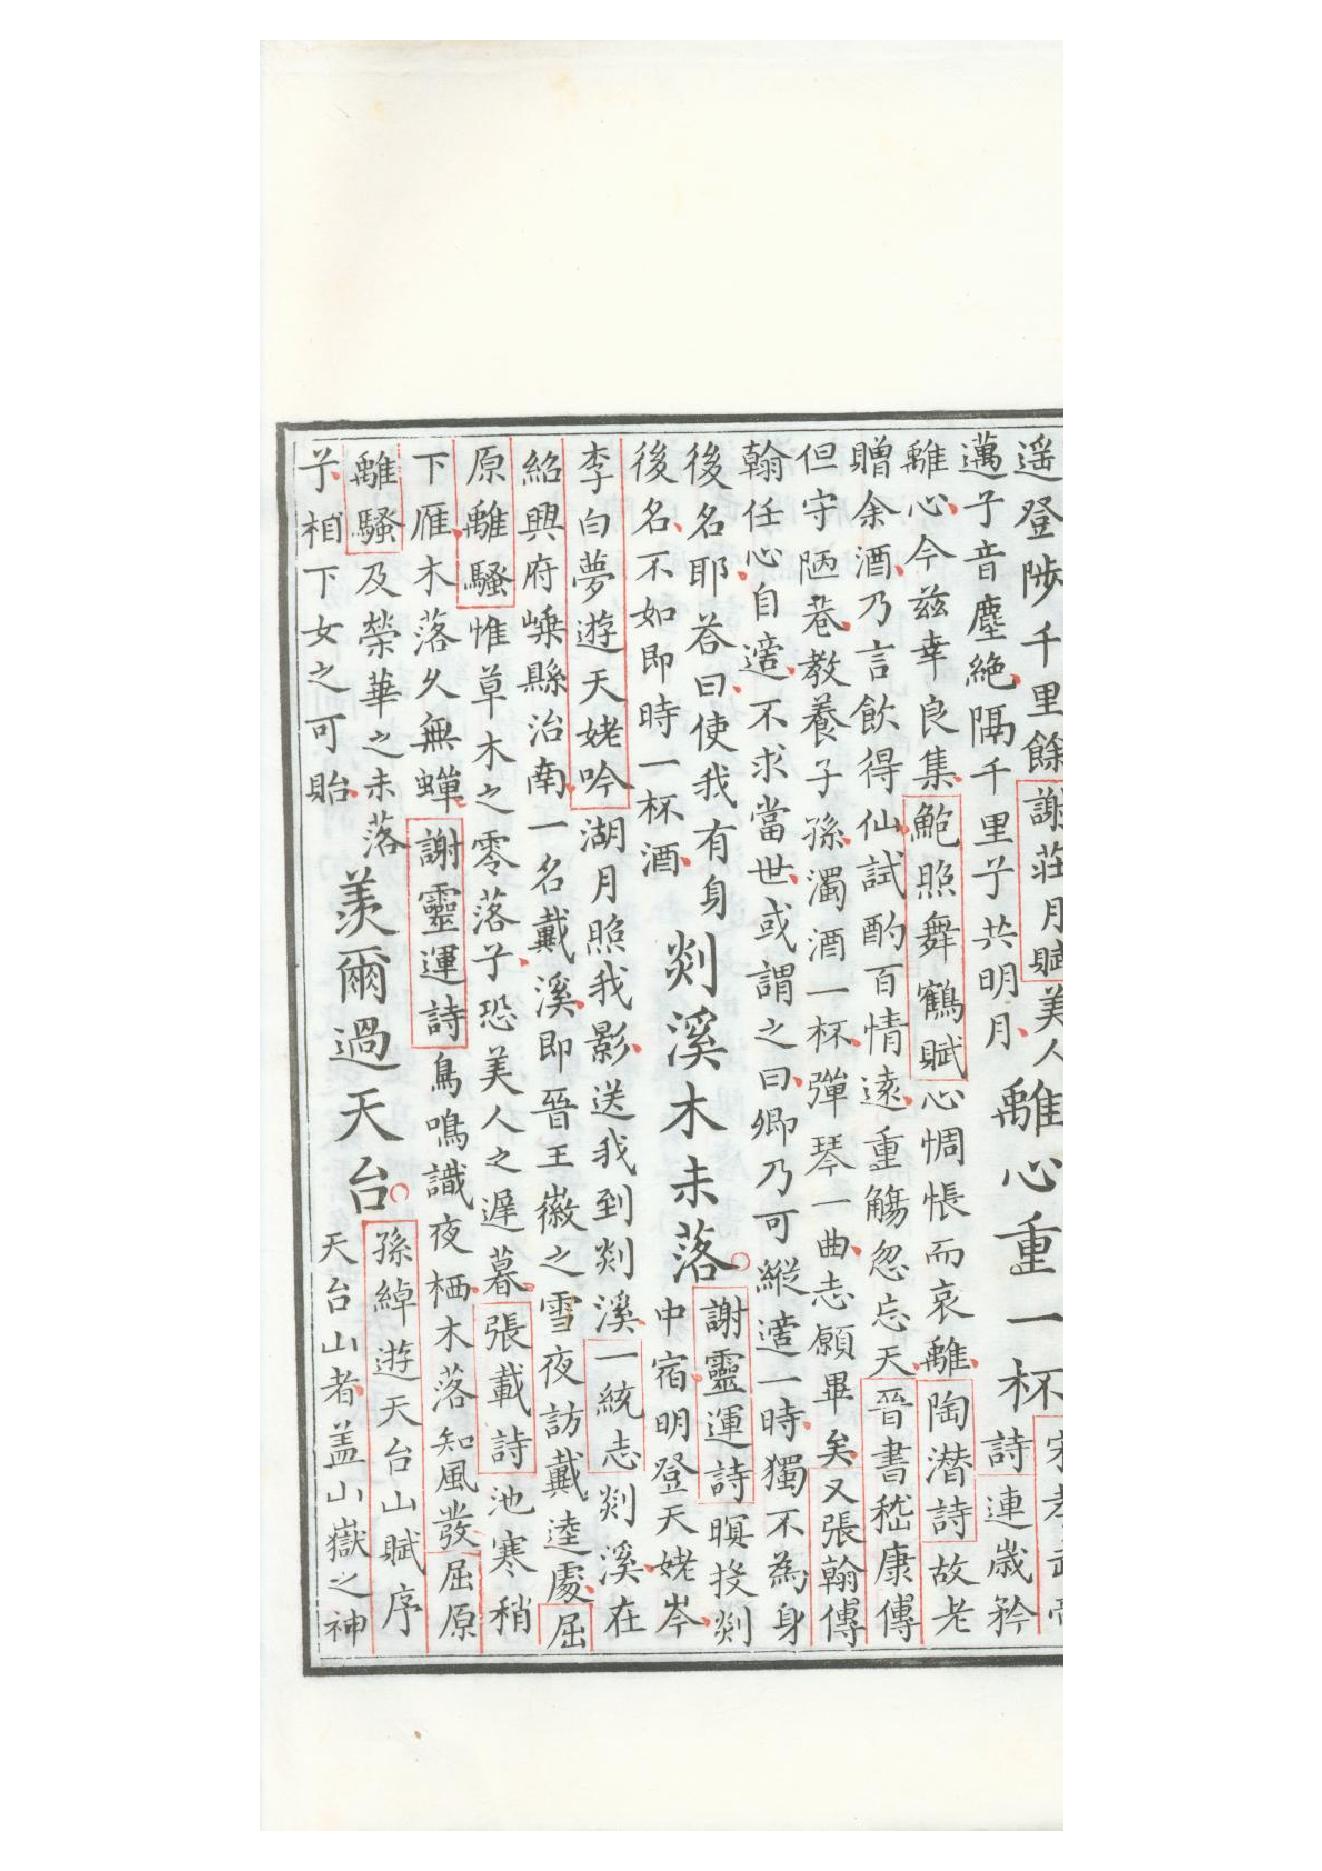 遥登陟千里餘謝莊月賦美人
邁兮音塵絶隔千里兮共明月
離心重一杯
宋孝武帝
詩連歳矜
離心今兹幸良集鮑照舞鶴賦心惆悵而哀離陶潜詩故老
贈余酒乃言飲得仙試酌百情遠重觴忽忘天晉書嵇康傳
但守陋巷教養子孫濁酒一杯彈琴一曲志願畢矣又張翰傳
翰任心自適不求當世或謂之曰卿乃可縱適一時獨不為身
後名耶荅曰使我有身
後名不如即時一杯酒
剡溪木未落
謝靈運詩暝投剡
中宿明登天姥岑
李白夢遊天姥吟湖月照我影送我到剡溪一統志剡溪在
紹興府嵊縣治南一名戴溪即晉王徽之雪夜訪戴逵處屈
原離騷惟草木之零落兮恐美人之遲暮張載詩池寒稍
下雁木落久無蟬謝靈運詩鳥鳴識夜栖木落知風發屈原
離騷及榮華之未落
兮相下女之可貽
羨爾過天台
孫綽遊天台山賦序
天台山者盖山嶽之神